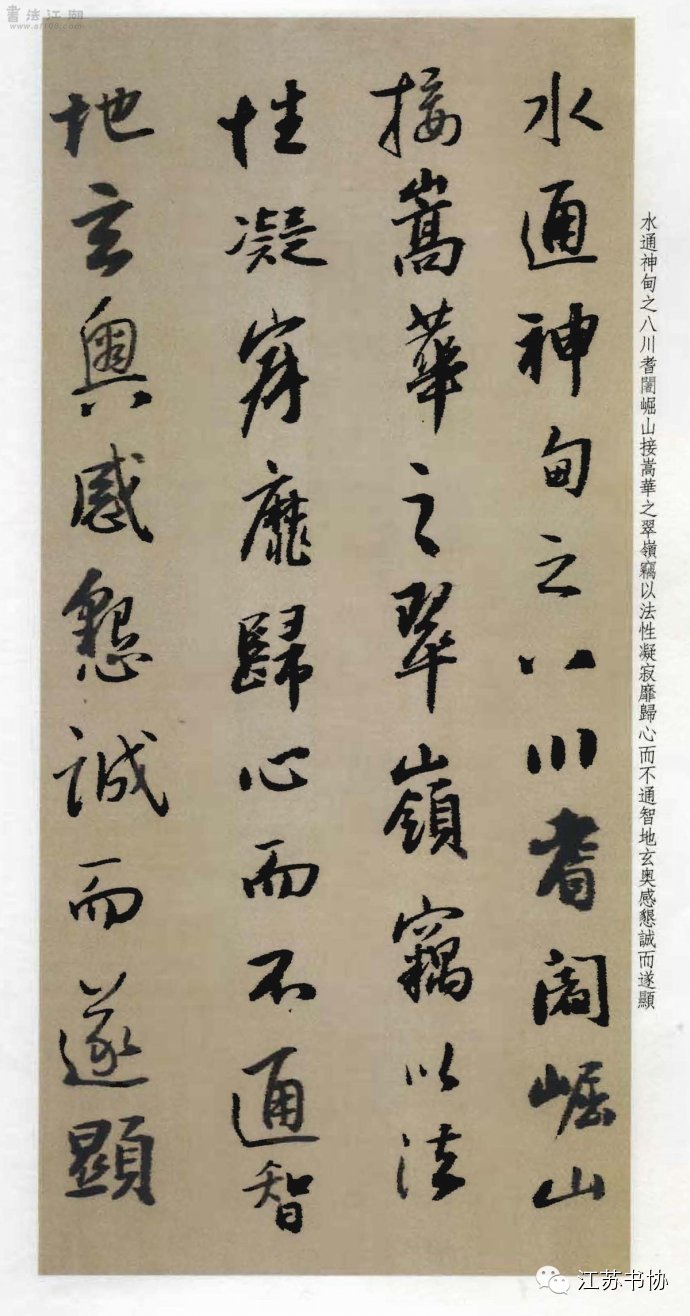 书法江湖
www.sf108.com
水通神甸之八川耆闍崛山
接嵩華之翠嶺竊以法
性凝寂靡歸心而不通智
地玄奥感懇誠而遂顯
水通神甸之八川耆闍崛山接嵩華之翠嶺竊以法性凝寂靡歸心而不通智地玄奥感懇誠而遂顯
江苏书协